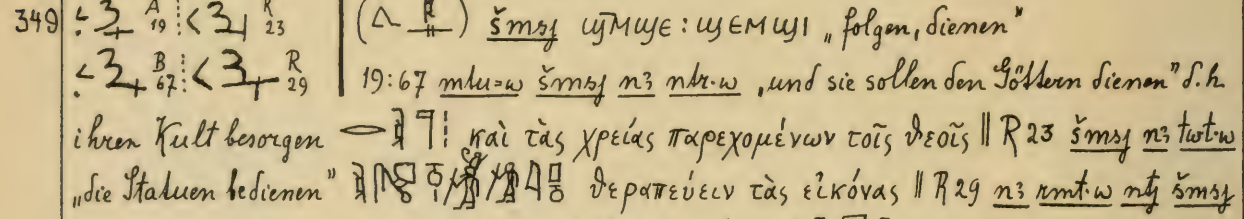 349 A 19 R 23 šmsj ϣⲙϣⲉ : ϣⲉⲙϣⲓ „folgen, dienen"
B 67 R 29 19:67 mtu=w šmsj n3 ntr·w „und sie sollen den Göttern dienen" d.h.
ihren Kult besorgen καὶ τὰς χρείας παρεχομένων τοῖς θεοῖς || R 23 šmsj n3 twt·w
„die Statuen bedienen" θεραπεύειν τὰς εἰκόνας || R 29 n3 rmt·w ntj šmsj